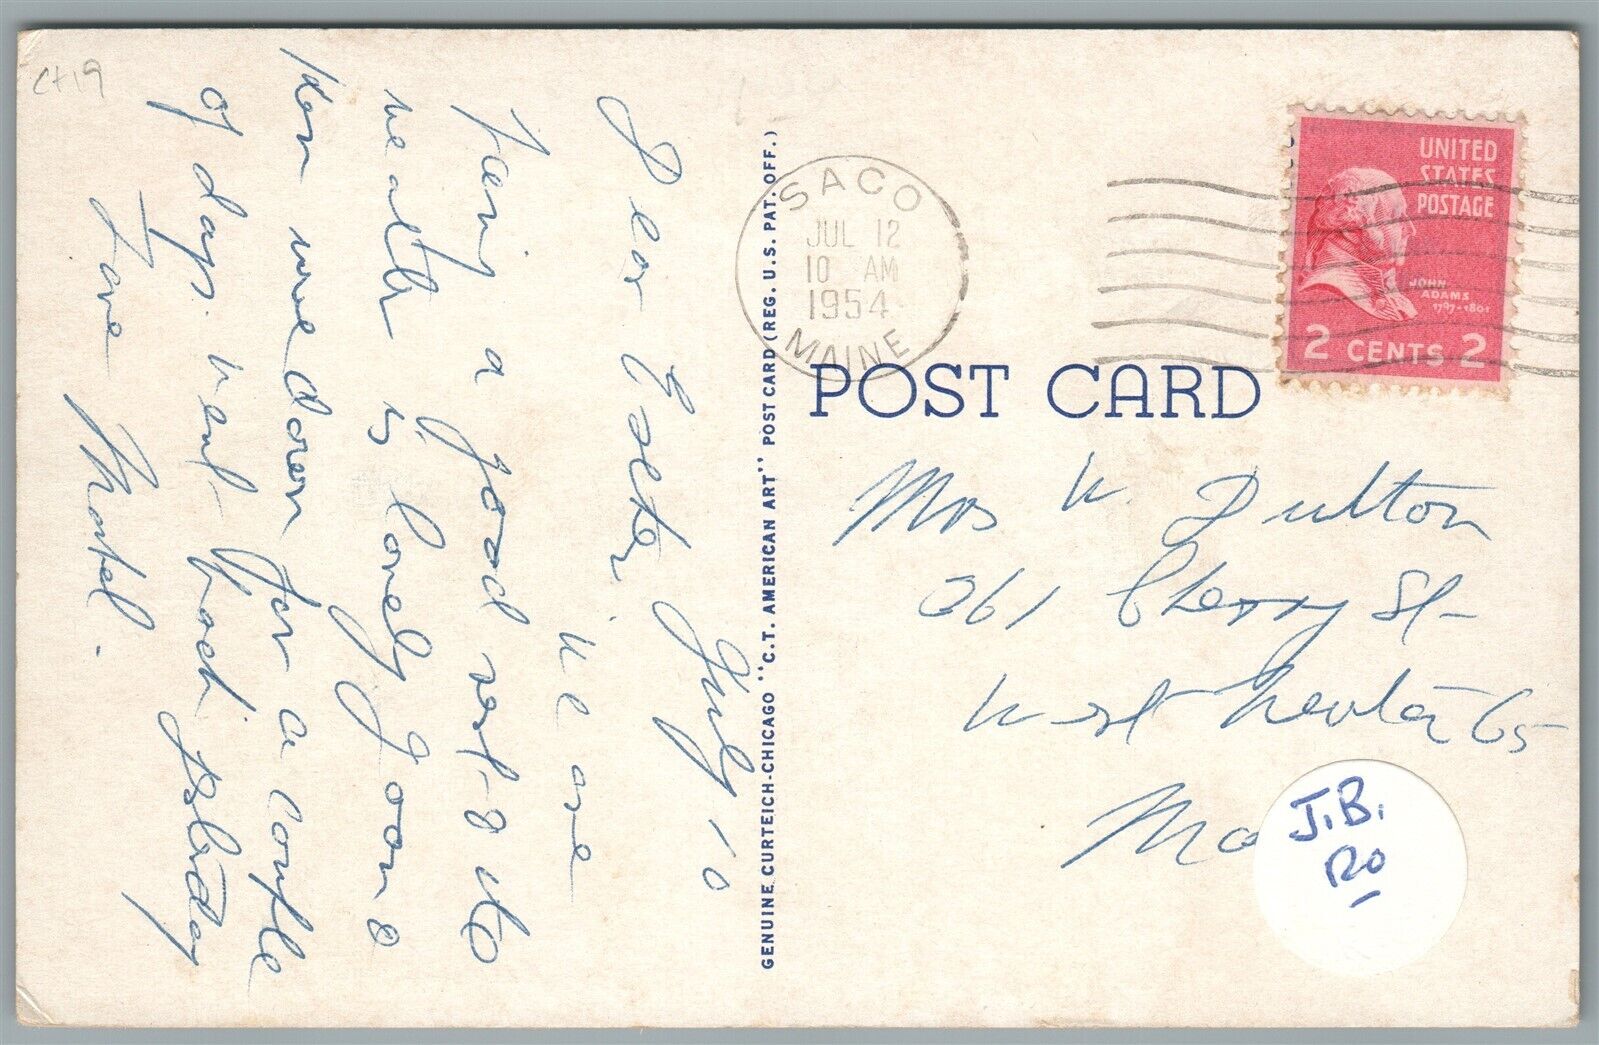 Dear Ester, July 10
We are
having a good rest. & the
weather is lovely. Joan &
Ken were down for a couple
of days. went back yesterday
Love Mabel.
GENUINE CURTEICH-CHICAGO "C.T. AMERICAN ART" POST CARD (REG. U.S. PAT. OFF.)
SACO
JUL 12
10 AM
1954
MAINE
UNITED
STATES
POSTAGE
JOHN
ADAMS
1797-1801
2 CENTS 2
POST CARD
Mrs W. Dutton
361 Cherry St-
West Newton 65
Ma
J.B.